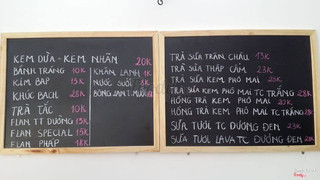 KEM DỪA - KEM NHÃN 20K
BÁNH TRÁNG 10K
KIM BAP 15K
KHÚC BẠCH 28K
TRÀ TẮC 10K
FLAN TT DƯỜNG 13K
FLAN SPECIAL 15K
FLAN PHÁP 18K
KHĂN LẠNH 1K
NƯỚC SUỐI 5K
BÔNG LAN T.MUỐI
TRÀ SỮA TRÂN CHÂU 15K
TRÀ SỮA THẬP CẨM 23K
TRÀ SỮA KEM PHÔ MAI 25K
TRÀ SỮA KEM PHÔ MAI TC TRẮNG 28K
HỒNG TRÀ KEM PHÔ MAI 20K
HỒNG TRÀ KEM PHÔ MAI TC TRẮNG 28K
SỮA TƯƠI TC ĐƯỜNG ĐEN 23K
SỮA TƯƠI LAVA TC ĐƯỜNG ĐEN 28K